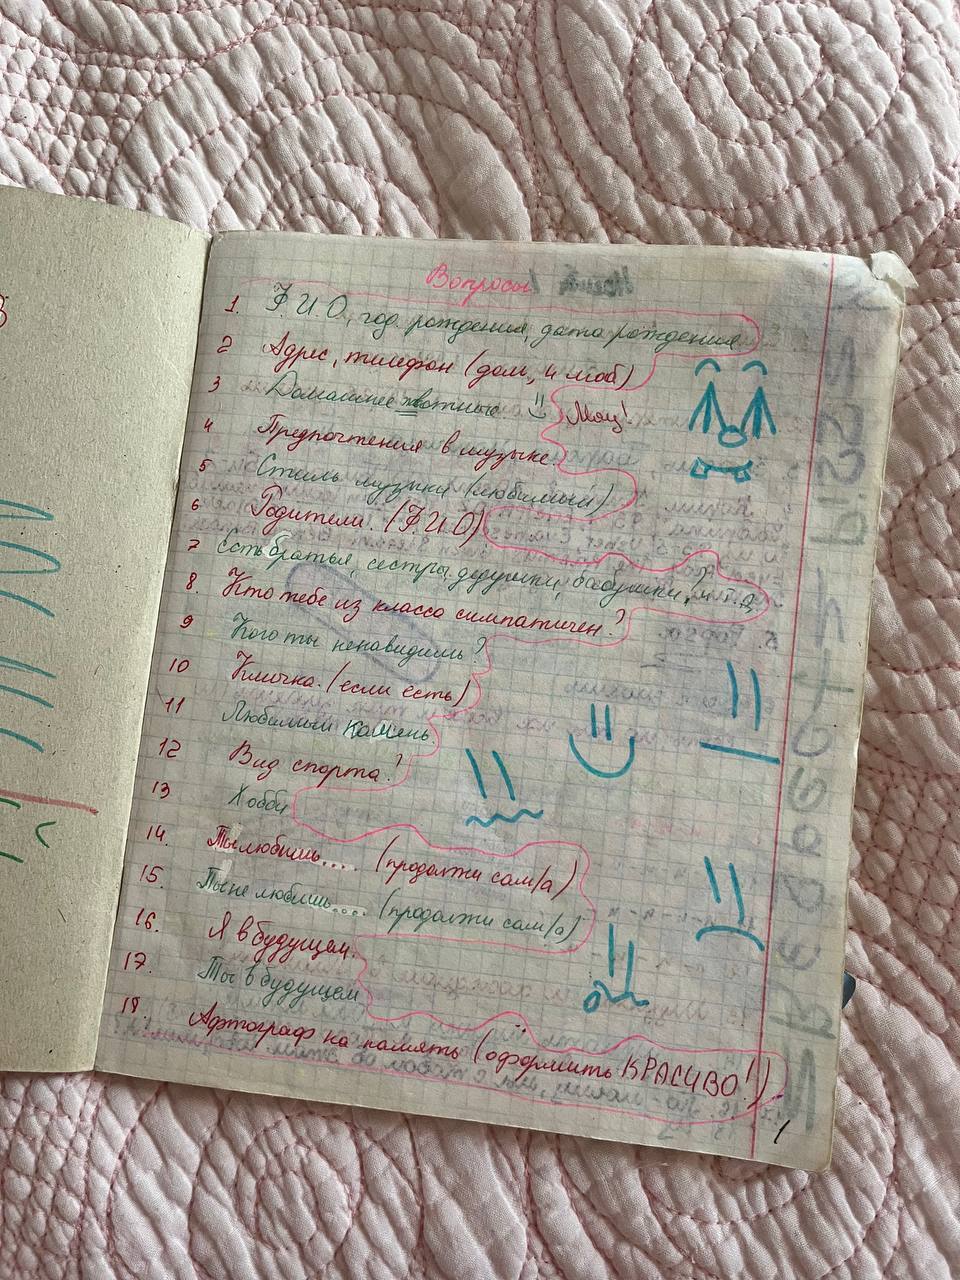 Вопросы
1. Ф.И.О, год. рождения, дата рождения
2 Адрес, телефон (дом, и моб)
3 Домашнее животные Моц!
4 Предпочтения в музыке.
5 Стиль музыки (любимый)
6 Родители. (Ф.И.О)
7 есть братья, сестры, дедушки, бабушки,
8. Кто тебе из класса симпатичен?
9 Кого ты ненавидишь?
10 Кличка. (если есть)
11 Любимый камень.
12 Вид спорта?
13 Хобби
14. Ты любишь.... (продолжи сам/а)
15. Ты не любишь.... (продолжи сам/а)
16. Я в будущем.
17. Ты в будущем
18. Афтограф на память (оформить КРАСИВО!)
1